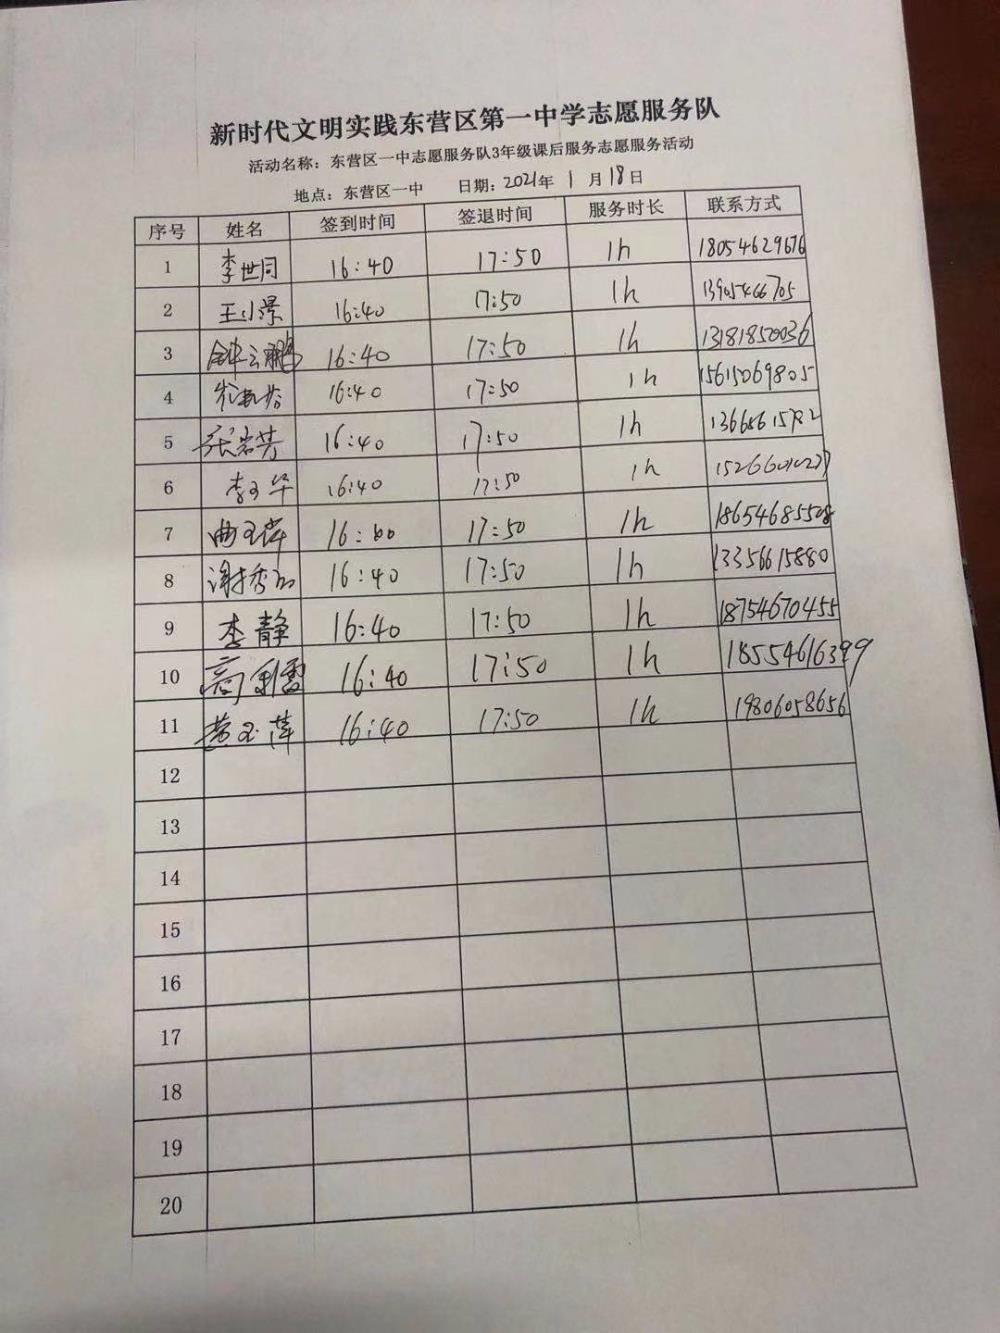 新时代文明实践东营区第一中学志愿服务队
活动名称：东营区一中志愿服务队3年级课后服务志愿服务活动
地点：东营区一中 日期：2021年 1月 18日
序号 姓名 签到时间 签退时间 服务时长 联系方式
1 李世同 16:40 17:50 1h 18054629676
2 王小景 16:40 17:50 1h 13905466705
3 钟云鹏 16:40 17:50 1h 13181850036
4 16:40 17:50 1h 15615069805
5 张岩芳 16:40 17:50 1h
6 李玉华 16:40 17:50 1h
7 曲玉萍 16:40 17:50 1h 18654685508
8 谢秀 16:40 17:50 1h 13356615880
9 李静 16:40 17:50 1h 18754670455
10 高利雪 16:40 17:50 1h 18554616399
11 黄玉萍 16:40 17:50 1h 19806058656
12
13
14
15
16
17
18
19
20